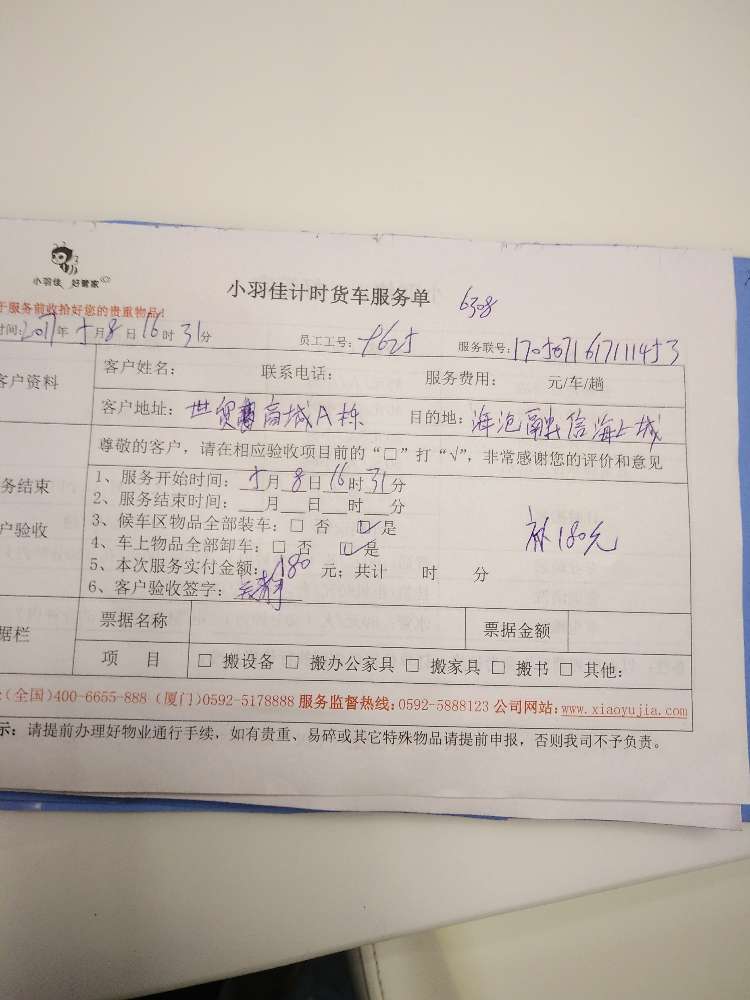 小羽佳 好管家
小羽佳计时货车服务单 6308
于服务前收拾好您的贵重物品!
时间:2017年5月8日16时31分 员工工号: 9625 服务联号:1705071617111453
客户资料
客户姓名: 联系电话: 服务费用: 元/车/趟
客户地址:世贸商城A栋 目的地:海沧融信海上城
尊敬的客户,请在相应验收项目前的“□”打“√”,非常感谢您的评价和意见
务结束
户验收
1、服务开始时间:5月8日16时31分
2、服务结束时间:__月__日__时__分
3、候车区物品全部装车:□ 否 ☑是
4、车上物品全部卸车:□ 否 ☑是
补180元
5、本次服务实付金额:180元;共计 时 分
6、客户验收签字:
据栏
票据名称 票据金额
项 目 □ 搬设备 □ 搬办公家具 □ 搬家具 □ 搬书 □ 其他:
(全国)400-6655-888 (厦门)0592-5178888 服务监督热线:0592-5888123 公司网站:www.xiaoyujia.com
示:请提前办理好物业通行手续,如有贵重、易碎或其它特殊物品请提前申报,否则我司不予负责。